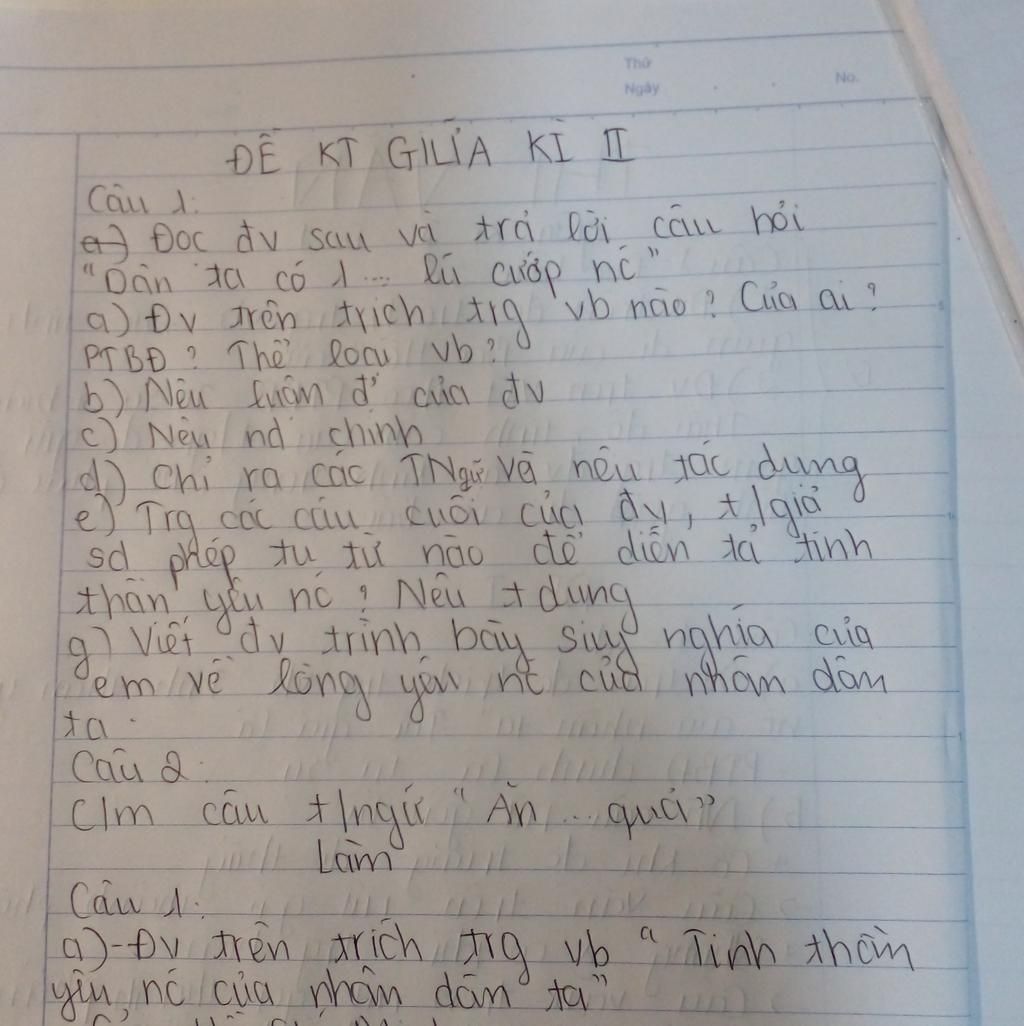 Thứ
Ngày
No.
ĐỀ KT GIỮA KÌ II
Câu 1:
a) Đọc đv sau và trả lời câu hỏi
"Dân ta có 1 ... lũ cướp nc"
a) Đv trên trích trg vb nào? Của ai?
PTBĐ? Thể loại vb?
b) Nêu luận đ' của đv
c) Nêu nd chính
d) Chỉ ra các TNgữ và nêu tác dụng
e) Trg các câu cuối của đv, t/giả
sd phép tu từ nào để diễn tả tinh
thần yêu nc? Nêu t dụng
g) Viết đv trình bày suy nghĩa của
em về lòng yêu nc của nhân dân
ta.
Câu 2:
C/m câu t/ngữ "Ăn ... quả"
Làm
Câu 1:
a) - Đv trên trích trg vb "Tinh thần
yêu nc của nhân dân ta"